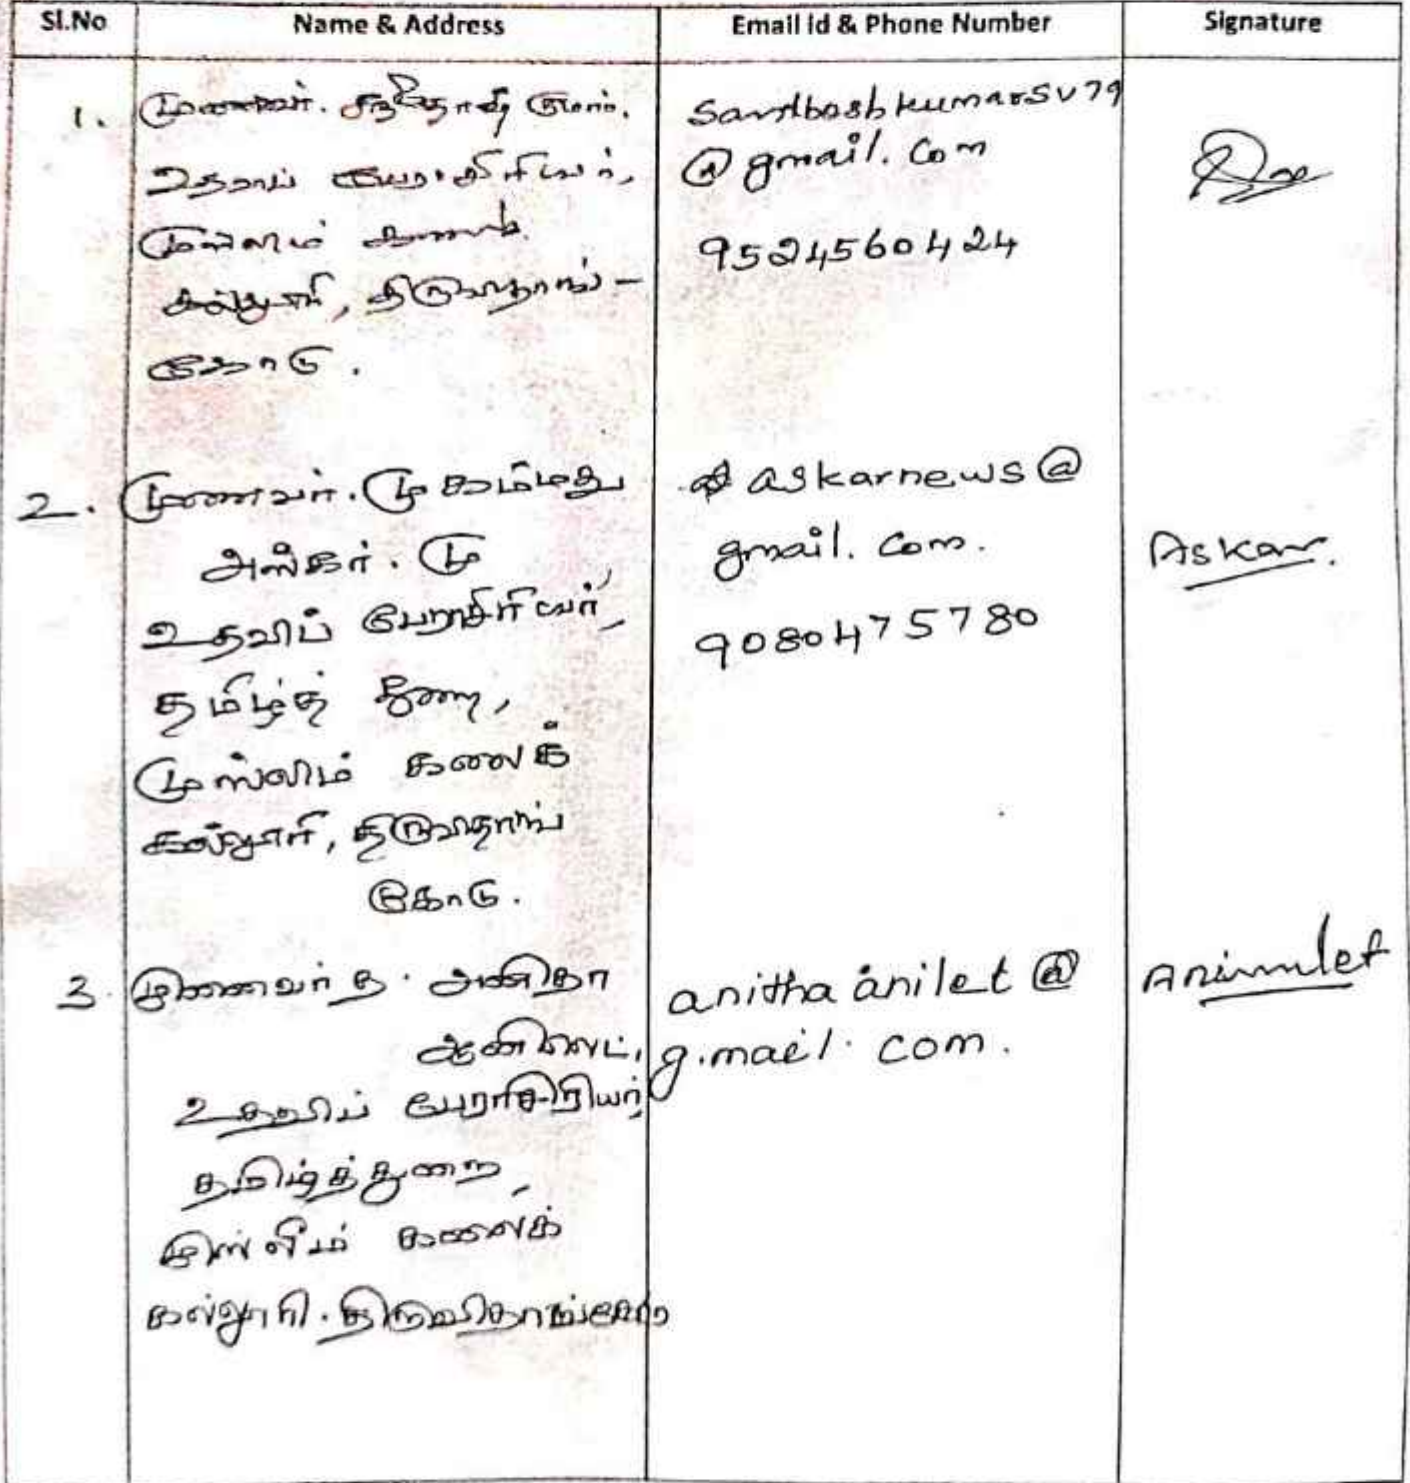 Sl.No Name & Address Email id & Phone Number Signature
1. முனைவர். சந்தோஷ் குமார்.
உதவிப் பேராசிரியர்,
முஸ்லிம் கலைக்
கல்லூரி, திருவிதாங் -
கோடு.
santhoshkumarsv79
@gmail.com
9524560424
2. முனைவர். முகம்மது
அஸ்கர். மு
உதவிப் பேராசிரியர்,
தமிழ்த் துறை,
முஸ்லிம் கலைக்
கல்லூரி, திருவிதாங்
கோடு.
askarnews@
gmail.com.
9080475780
Askar.
3. முனைவர் த. அனிதா
ஆனிலெட்,
உதவிப் பேராசிரியர்,
தமிழ்த்துறை,
முஸ்லீம் கலைக்
கல்லூரி. திருவிதாங்கோடு
anitha anilet @
g.mail.com.